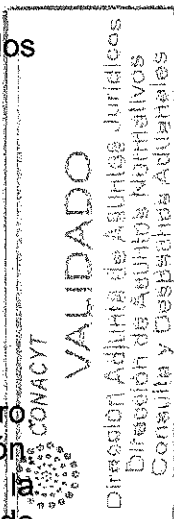 os
ro
ón,
la
de
CONACYT
VALIDADO
Dirección Adjunta de Asuntos Jurídicos
Dirección de Asuntos Normativos
Consulta y Despachos Aduanales